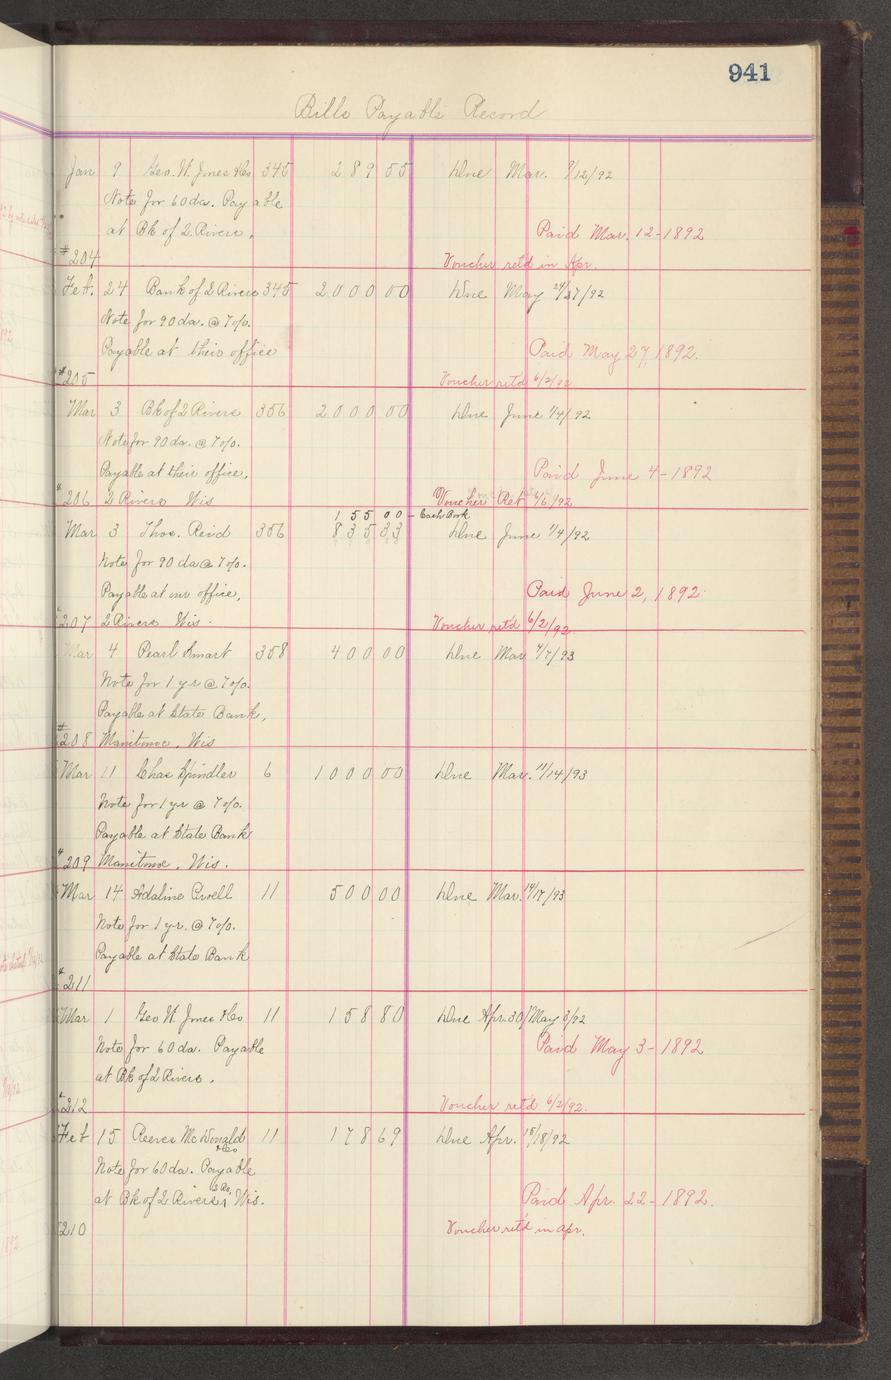 941
Bills Payable Record
Jan 9 Geo. W. Jones & Co 345 289 55 Due Mar. 9/12/92
Note for 60 da. Payable
at Bk of 2 Rivers. Paid Mar. 12-1892
#204 Voucher ret'd in Apr.
Feb. 24 Bank of 2 Rivers 345 2000 00 Due May 24/27/92
Note for 90 da. @ 7%.
Payable at their office Paid May 27, 1892.
#205 Voucher ret'd 6/2/92
Mar 3 Bk of 2 Rivers 356 2000 00 Due June 1/4/92
Note for 90 da. @ 7%.
Payable at their office, Paid June 4-1892
#206 2 Rivers Wis Voucher Ret 6/6/92
155 00 - Cash Book
Mar 3 Thos. Reid 356 835 33 Due June 1/4/92
Note for 90 da @ 7%.
Payable at our office, Paid June 2, 1892.
#207 2 Rivers Wis. Voucher ret'd 6/2/92
Mar 4 Pearl Smart 358 400 00 Due Mar 4/7/93
Note for 1 yr @ 7%.
Payable at State Bank,
#208 Manitowoc, Wis
Mar 11 Chas Spindler 6 1000 00 Due Mar. 11/14/93
Note for 1 yr @ 7%.
Payable at State Bank
#209 Manitowoc, Wis.
Mar 14 Adaline 11 500 00 Due Mar. 14/17/93
Note for 1 yr. @ 7%.
Payable at State Bank
#211
Mar 1 Geo W. Jones & Co 11 158 80 Due Apr. 30/May 3/92
Note for 60 da. Payable Paid May 3-1892
at Bk of 2 Rivers.
#212 Voucher ret'd 6/2/92.
Feb 15 McDonald 11 178 69 Due Apr. 15/18/92
& Co
Note for 60 da. Payable
at Bk of 2 Rivers, Wis. Paid Apr. 22-1892.
210 Voucher ret'd in apr.